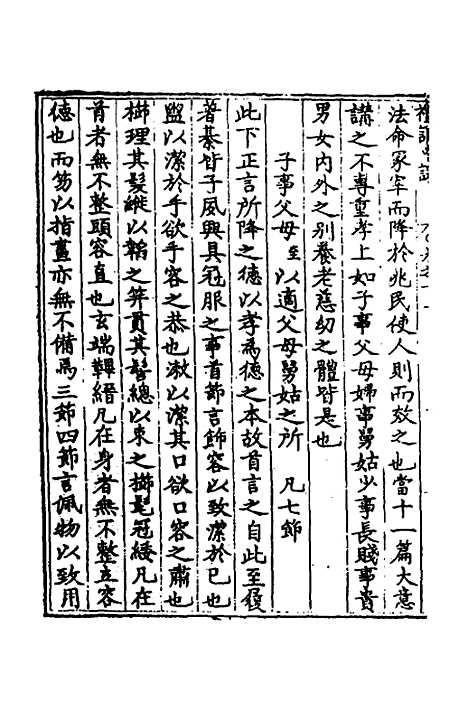 法命冢宰而降於兆民使人則而效之也當十一篇大意
講之不專重孝上如子事父母婦事舅姑少事長賤事貴
男女内外之别養老慈幼之體皆是也
子事父母至以適父母舅姑之所　凡七節
此下正言所降之德以孝為德之本故首言之自此至屨
著綦皆子夙興具冠服之事首節言飾容以致潔於已也
盥以潔於手欲手容之恭也漱以潔其口欲口容之肅也
櫛理其髮縰以韜之筓貫其髻總以束之櫛髦冠緌凡在
首者無不整頭容直也玄端韠縉凡在身者無不整立容
德也而笏以指畫亦無不備焉三節四節言佩物以致用